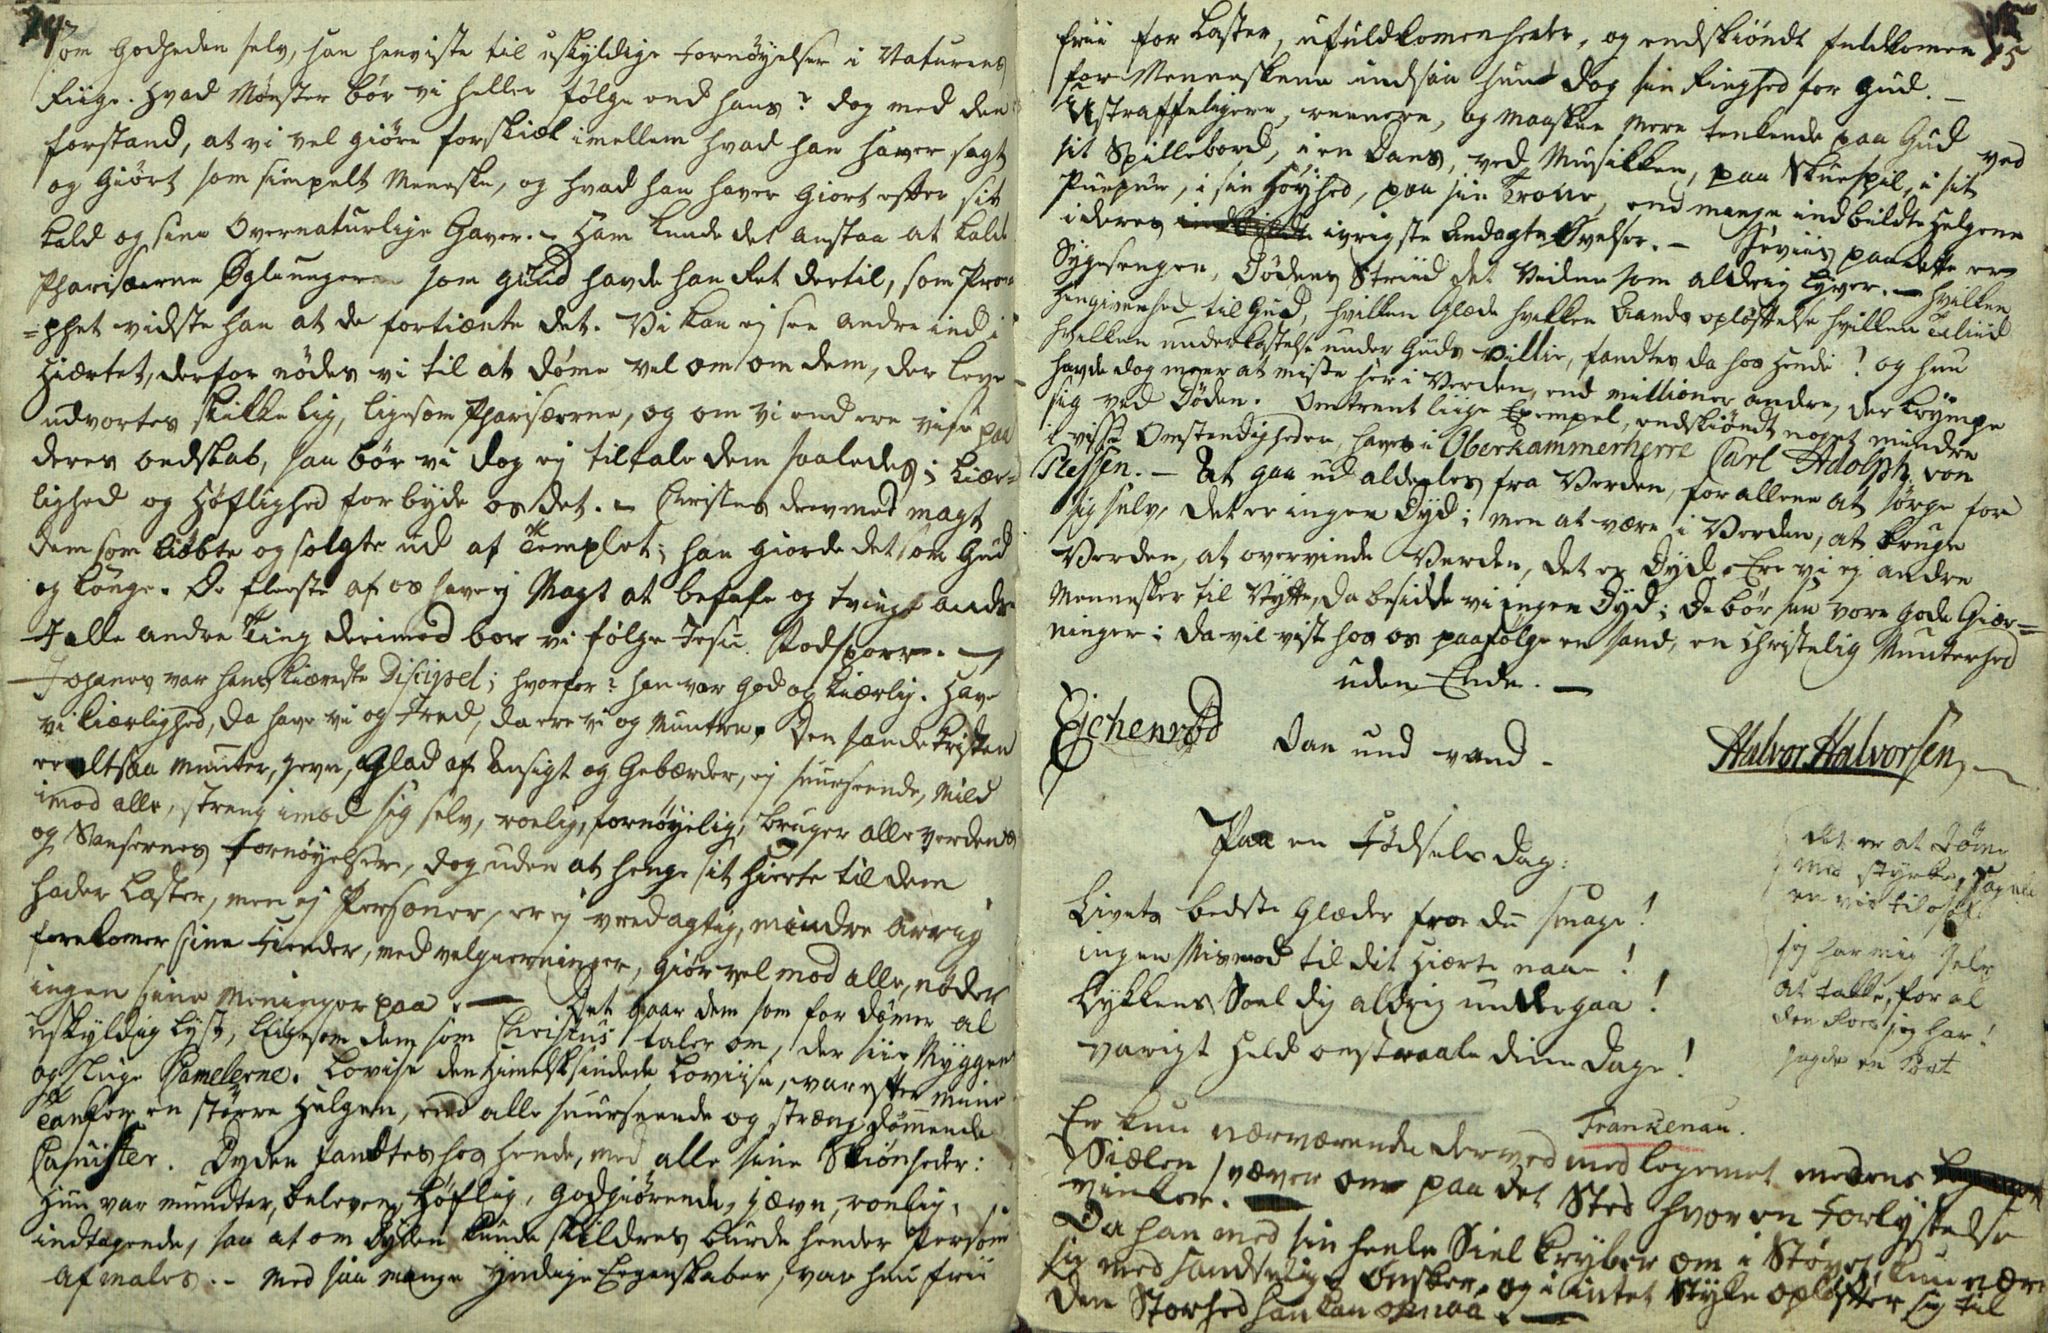 som Godheden selv, han henviste til uskyldige Fornöyelser i Naturens
Riige. Hvad Mønster bør vi heller følge end hans? dog med den
forstand, at vi vel giöre forskiæl imellem hvad han haver sagt
og Giört som simpelt Meneske, og hvad han haver Giort efter sit
Kald og sine Overnaturlige Gaver. - Ham kunde det anstaa at kalde
Pharisæerne Øgleunger som Guud havde han Ret dertil, som Pro=
=phet vidste han at de fortiente det. Vi kan ej see andre ind i
Hiærtet, derfor nödes vi til at dømme vel om om dem, der leve
udvortes skikkelig, ligesom Pharisæerne, og om vi end ere visse paa
deres ondskab, saa bör vi dog ej tiltale dem saaledes; Kiær=
lighed og Höflighed forbyde os det. - Christus drev med magt
dem som kiöbte og solgte ud af Templet; han giorde det som Gud
og Konge. De fleeste af os have ej Magt at befale og tvinge andre
I alle andre Ting derimod bør vi følge Jesu Fodspor. -
Johanes var hans kiæreste Discipel; hvorfor? han var God og kiærlig. Have
vi kiærlighed, da have vi og Fred, da ere vi og Muntre. Den sande Kristen
er altsaa munter, jevn, Glad af Ansigt og Gebærder, ej suurseende, mild
imod alle, streng imod sig selv, roelig, fornøyelig, bruger alle verdens
og Sansernes Fornöyelser, dog uden at henge sit Hierte til dem
hader Laster, men ej Personer, er ej vredagtig, mindre arrig
forekomer sine Fiender, med velgierninger, giör vel mod alle, nöder
ingen sine Meninger paa. - Det gaar dem som for dømer al
uskyldig Lyst, ligesom dem som Christus taler om, der siie Myggen
og sluge Camelerne. Lovise den Himelsksindede Loviise, var efter mine
Tanker en större Helgen, end alle suurseende og strængdömmende
Casuister. Dyden fandtes hos hende, med alle sine Skiönheder:
Hun var mundter, beleven, höflig, Godgiörende, jævn, roelig,
indtagende, saa at om Dyden kunde skildres burde hendes Person
afmales. - Med saa mange yndige Egenskaber, var hun frii
frii for Laster, ufuldkomenheder, og endskiöndt fuldkomen
for Menneskene indsaa hun dog sin Ringhed for Gud. -
Ustraffeligere, renere, og maaskee mere tenkende paa Gud ved
sit Spillebord, i en Dans, ved Musikken, paa Skuespil, i sit
Purpur, i sin Höyhed, paa sin Trone, end mange indbildte Helgene
i deres ivrigste Andagts Øvelser. - Beviis paa dette er
Sygesengen, Dödens Striid det Vidne som aldrig lyver. - Hvilken
Hengivenhed til Gud, hvilken Glæde hvilken Aands opløftelse hvilken Tiliid
hvilken underkastelse under Guds Villie, fandtes da hos hende! og hun
havde dog meer at miste her i Verden, end millioner andre, der krympe
sig ved Döden. Omtrent liige Exempel, endskiöndt noget mindre
i visse Omstendigheder, haves i Oberkammerherre Carl Adolph von
Plessen. - At gaa ud aldeeles fra Verden, for allene at sörge for
sig selv, det er ingen Dyd; men at være i Verden, at bruge
Verden, at overvinde Verden, det er Dyd. Ere vi ej andre
Mennesker til Nytte, da besidde vi ingen Dyd; De bør see vore gode Gier=
ninger; da vil vist hos os paafølge en sand, en Christelig Munterhed
uden Ende. -
Ejchenröd Dan und vand. Halvor Halvorsen,
Paa en Födsels dag:
Livets bedste Glæder froe du smage!
ingen Mismod til dit Hiærte naae!
Lykkens Soel dig aldrig undergaa!
varigt Held omstraale dine Dage!
Frankenau.
det er at Döme
med styrke,
en vis tilosof.
jeg har mig selv
at takke, for al
den Roes jeg har!
sagde en Poet
Er kun nærværende derved med Legemet medens
Siælen svæver om paa det Sted hvor en Forlystelse
vinker. -
Da han med sin heele Siel kryber om i Støvet, kun nærer
sig med sandselige Ønsker, og i intet Stykke oplöfter sig til
den Storhed han kan opnaa. -